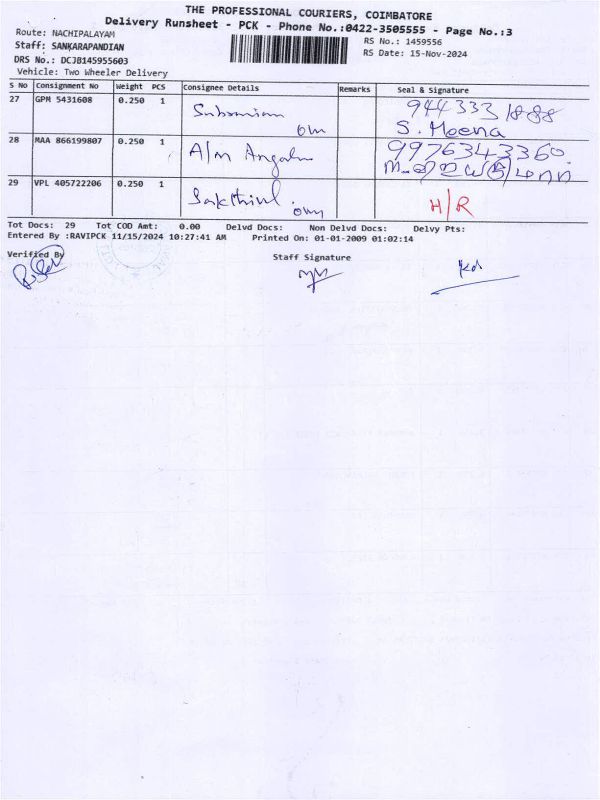 THE PROFESSIONAL COURIERS, COIMBATORE
Delivery Runsheet - PCK - Phone No.:0422-3505555 - Page No.:3
Route: NACHIPALAYAM
RS No.: 1459556
Staff: SANKARAPANDIAN
RS Date: 15-Nov-2024
DRS No.: DCJB145955603
Vehicle: Two Wheeler Delivery
S No Consignment No Weight PCS Consignee Details Remarks Seal & Signature
27 GPM 5431608 0.250 1 944333 1888
S. Meena
28 MAA 866199807 0.250 1 A/m 9976343360
29 VPL 405722206 0.250 1 Sakthivel H/R
Tot Docs: 29 Tot COD Amt: 0.00 Delvd Docs: Non Delvd Docs: Delvy Pts:
Entered By :RAVIPCK 11/15/2024 10:27:41 AM Printed On: 01-01-2009 01:02:14
Verified By
Staff Signature